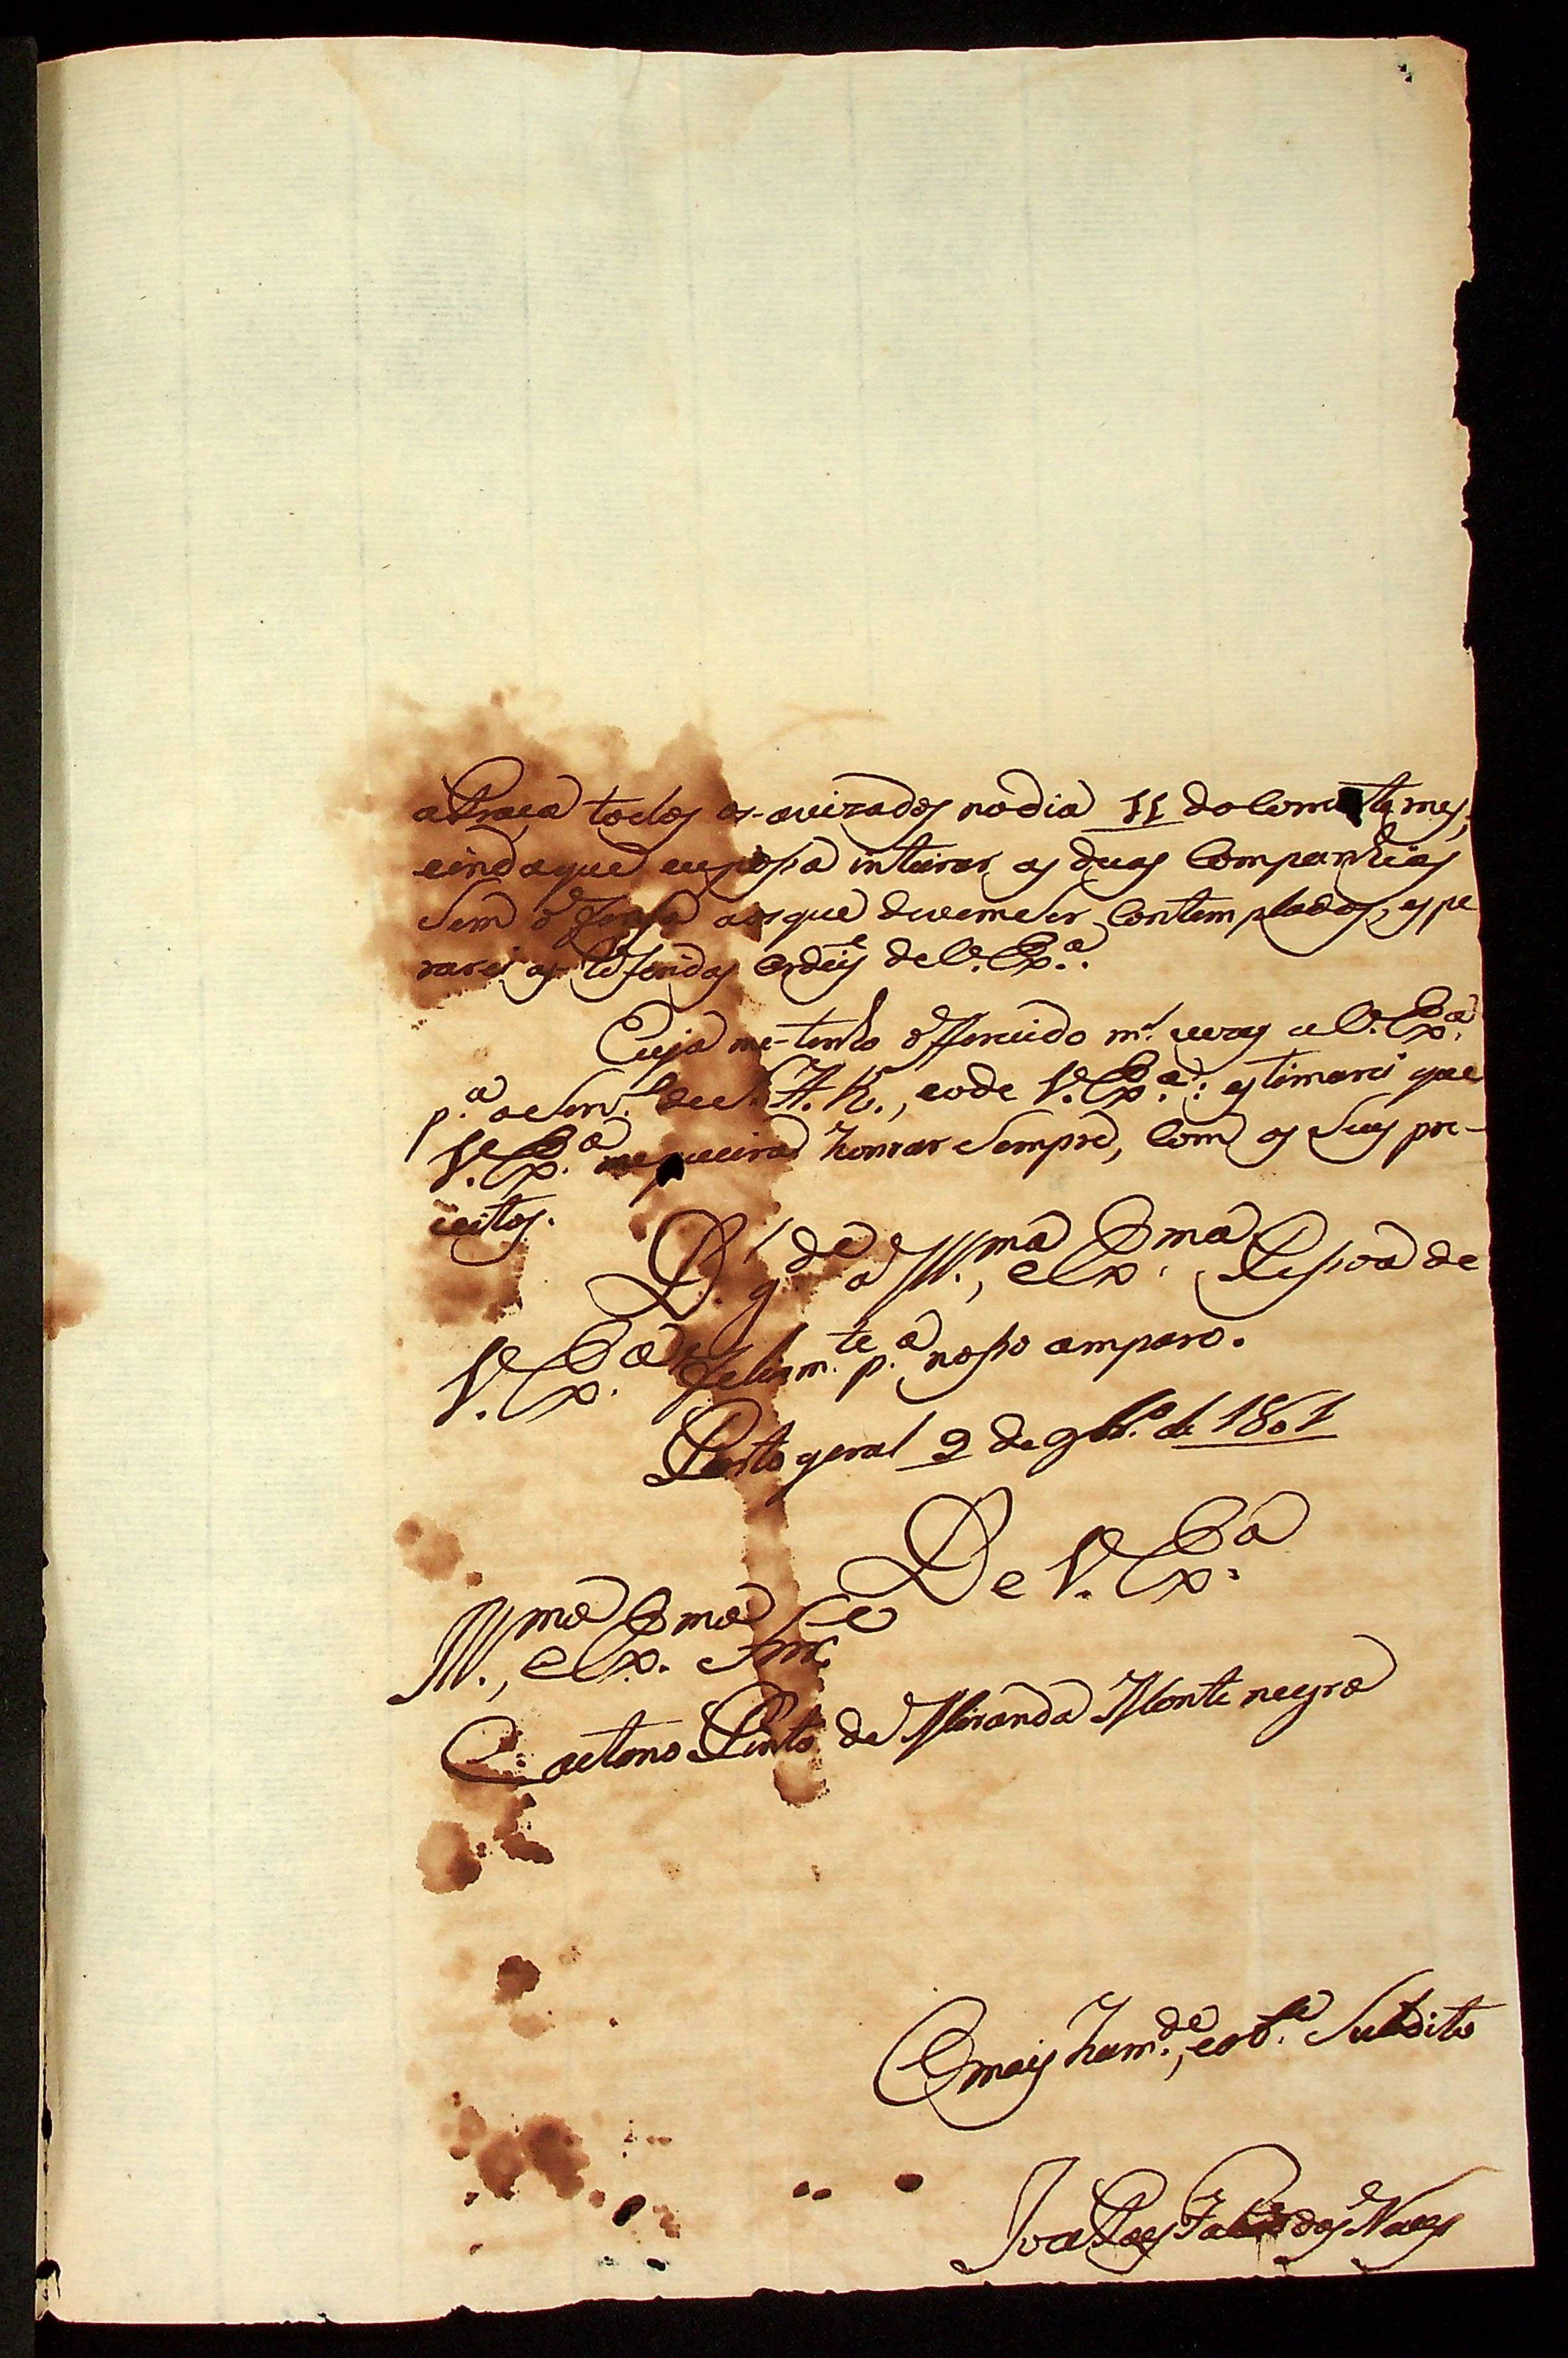 aPraca todos os avizados nodia 11 do Corrente mes,
eindaque eu possa inteirar as duas Companhias
Sem offensa aos que devemser Contemplados, espe
rarei as referidas ordeis deV. Exª.
Eujá me-tenho offerecido m.tas vezes a V. Exª
p.ª oServ.º de S. A. R., eode V. Exª: estimarei que
V. Exª mequeira honrar Sempre, Com os Seus pre-
ceitos.
D.s g.de a Ill.ma, eEx.ma Pessoa de
V. Exª felizm.te p.ª nosso amparo.
Porto geral 9 de 9br.º de 1801
De V. Exª
Ill.mo, eEx.mo Snr.
Caetano Pinto de Miranda Montenegro
Omais hum.de, eob.te Subdito
João Paes Falcão das Neves